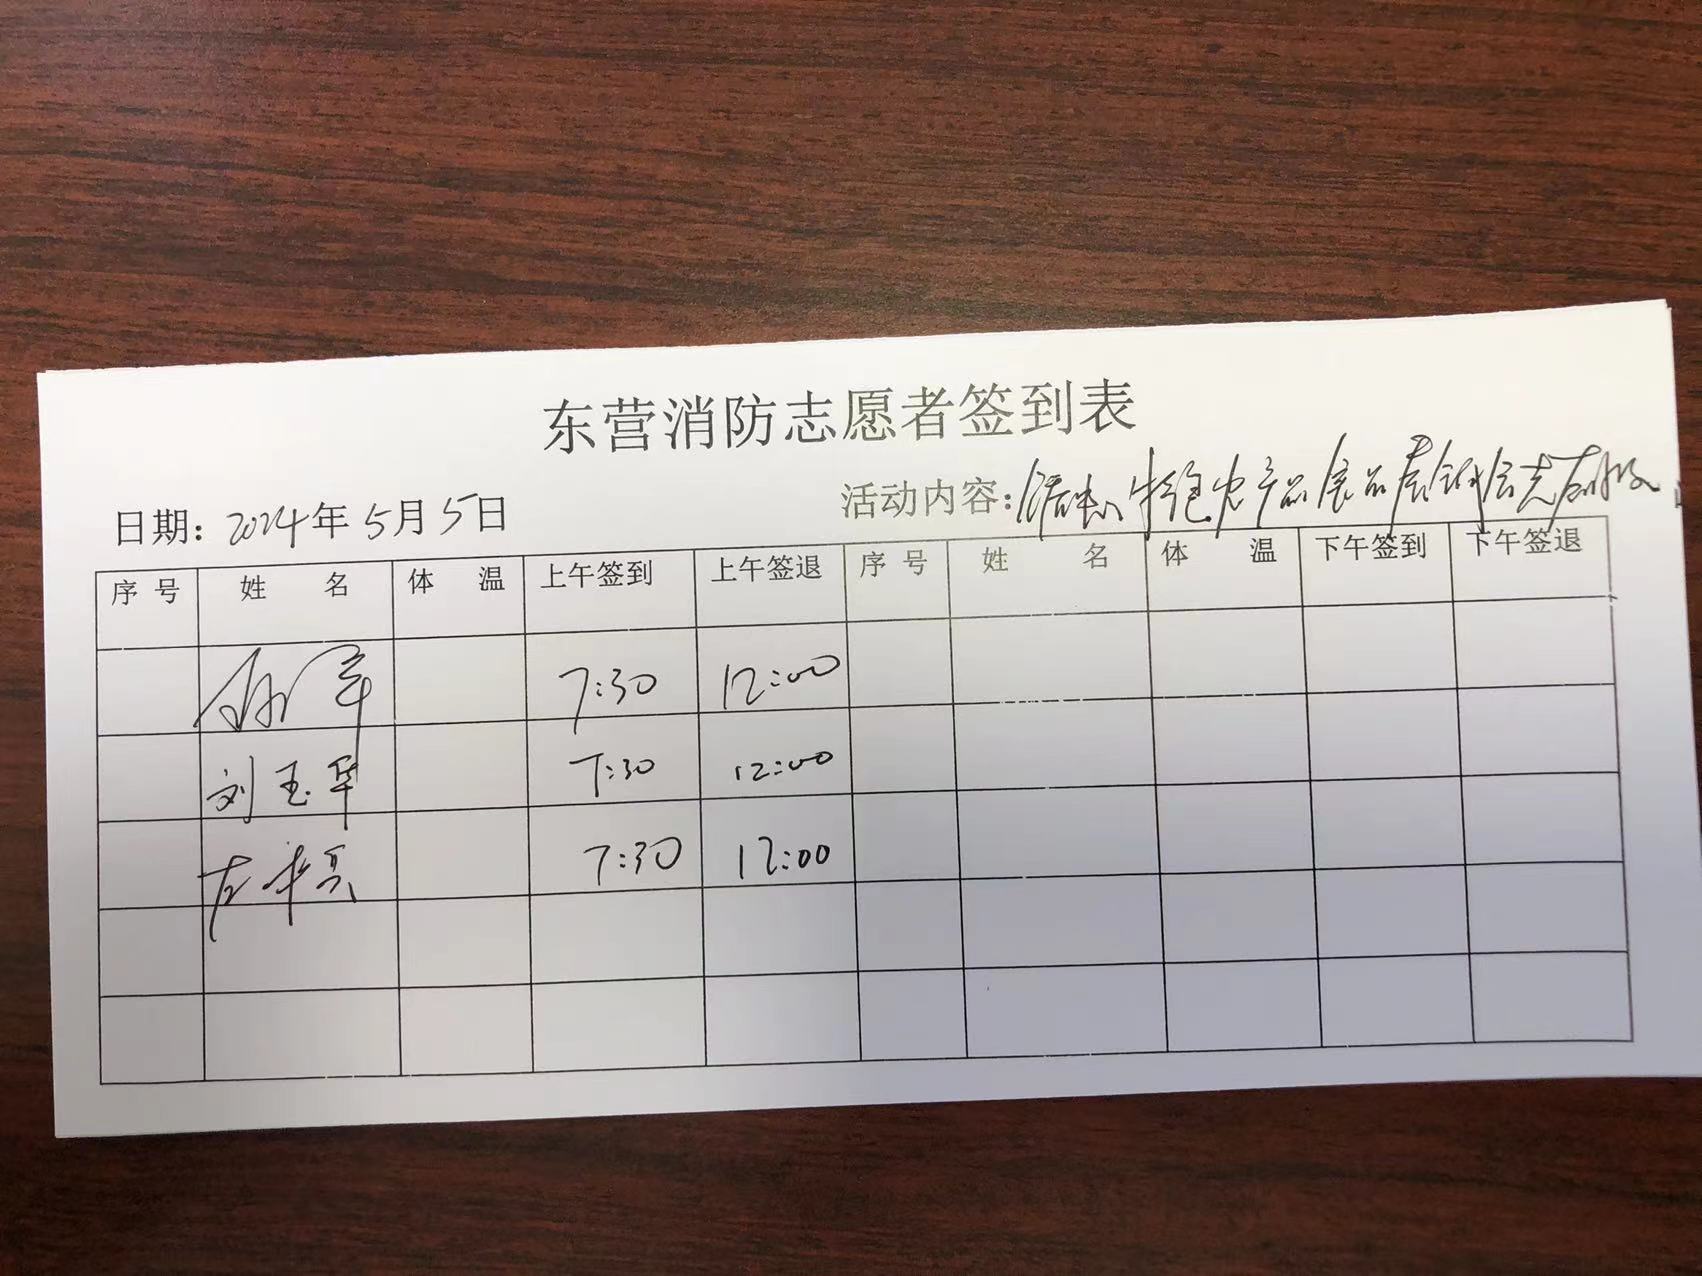 东营消防志愿者签到表
日期: 2024年5月5日 活动内容: 产品展品展销会志愿服
序号 姓名 体温 上午签到 上午签退 序号 姓名 体温 下午签到 下午签退
7:30 12:00
刘玉华 7:30 12:00
左 7:30 12:00